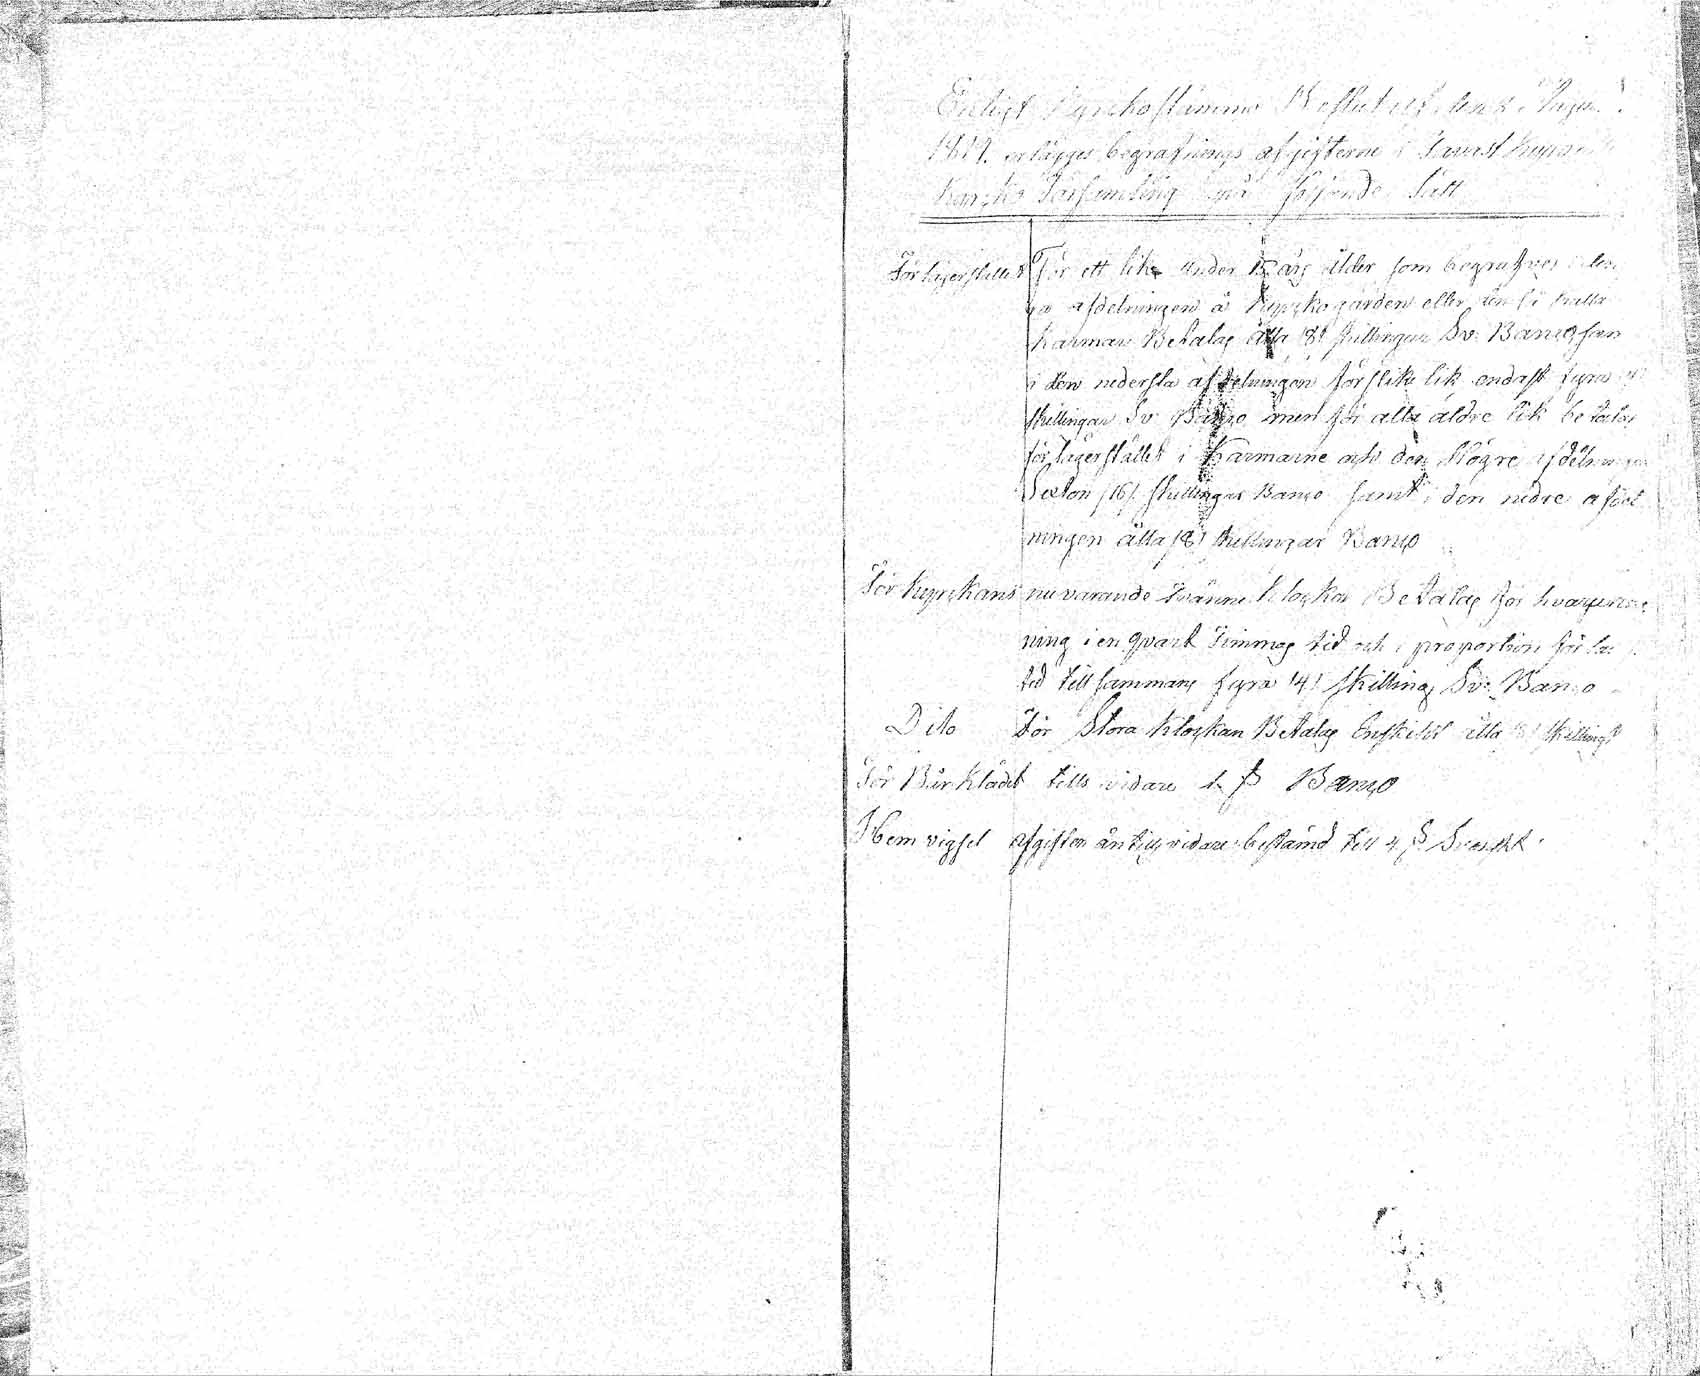 Enligt Kyrckostämmo Beslut af den
1819. erlägges begrafnings afgifterne i
Karzko Församling på följande Sätt
För lägerstället För ett lik under 15 års ålder som begrafves i
afdelningen å Kyrckogården eller den så kallade
Karmarn Betalas åtta /8/ skillingar Sv: Banco
i den nedersta afdelningen för slika lik endast fyra /4/
skillingar Sv: Banco men för alla äldre lik betalas
för lägerstället i Karmarne och den Högre afdelningen
Sexton /16/ skillingar Banco samt i den nedre afdel
ningen åtta /8/ skillingar Banco
För kyrckans nuvarande tvänne klockor Betalas för hvarje
ning i en qvart Timmas tid och i proportion för
tid till sammans fyra /4/ skilling Sv: Banco
Dito För Stora Klockan Betalas Enskildt åtta /8/ skillingr
För Bårklädet tills vidare 1 ß Banco
Hemvigsel afgiften än tills vidare bestämd till 4 ß Svenskt